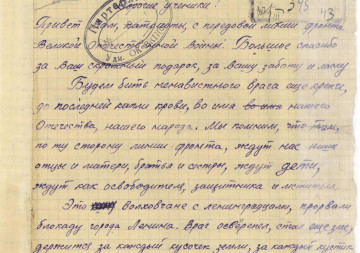 учишки!
Привет вам, патриоты, с передовой линии фронта
Великой Отечественной войны. Большое спасибо
за Ваш скромный подарок, за вашу заботу и ласку
Будем бить ненавистного врага еще крепче,
до последней капли крови, во имя во имя нашего
Отечества, нашего народа. Мы помним, что там,
по ту сторону линии фронта, ждут нас наши
отцы и матери, братья и сестры, ждут дети,
ждут как освободителя, защитника и мстителя.
Это волховчане с ленинградцами, прорвали
блокаду города Ленина. Враг осверепел, стал еще злее,
держится за каждый кусочек земли, за каждый кустик
345
43